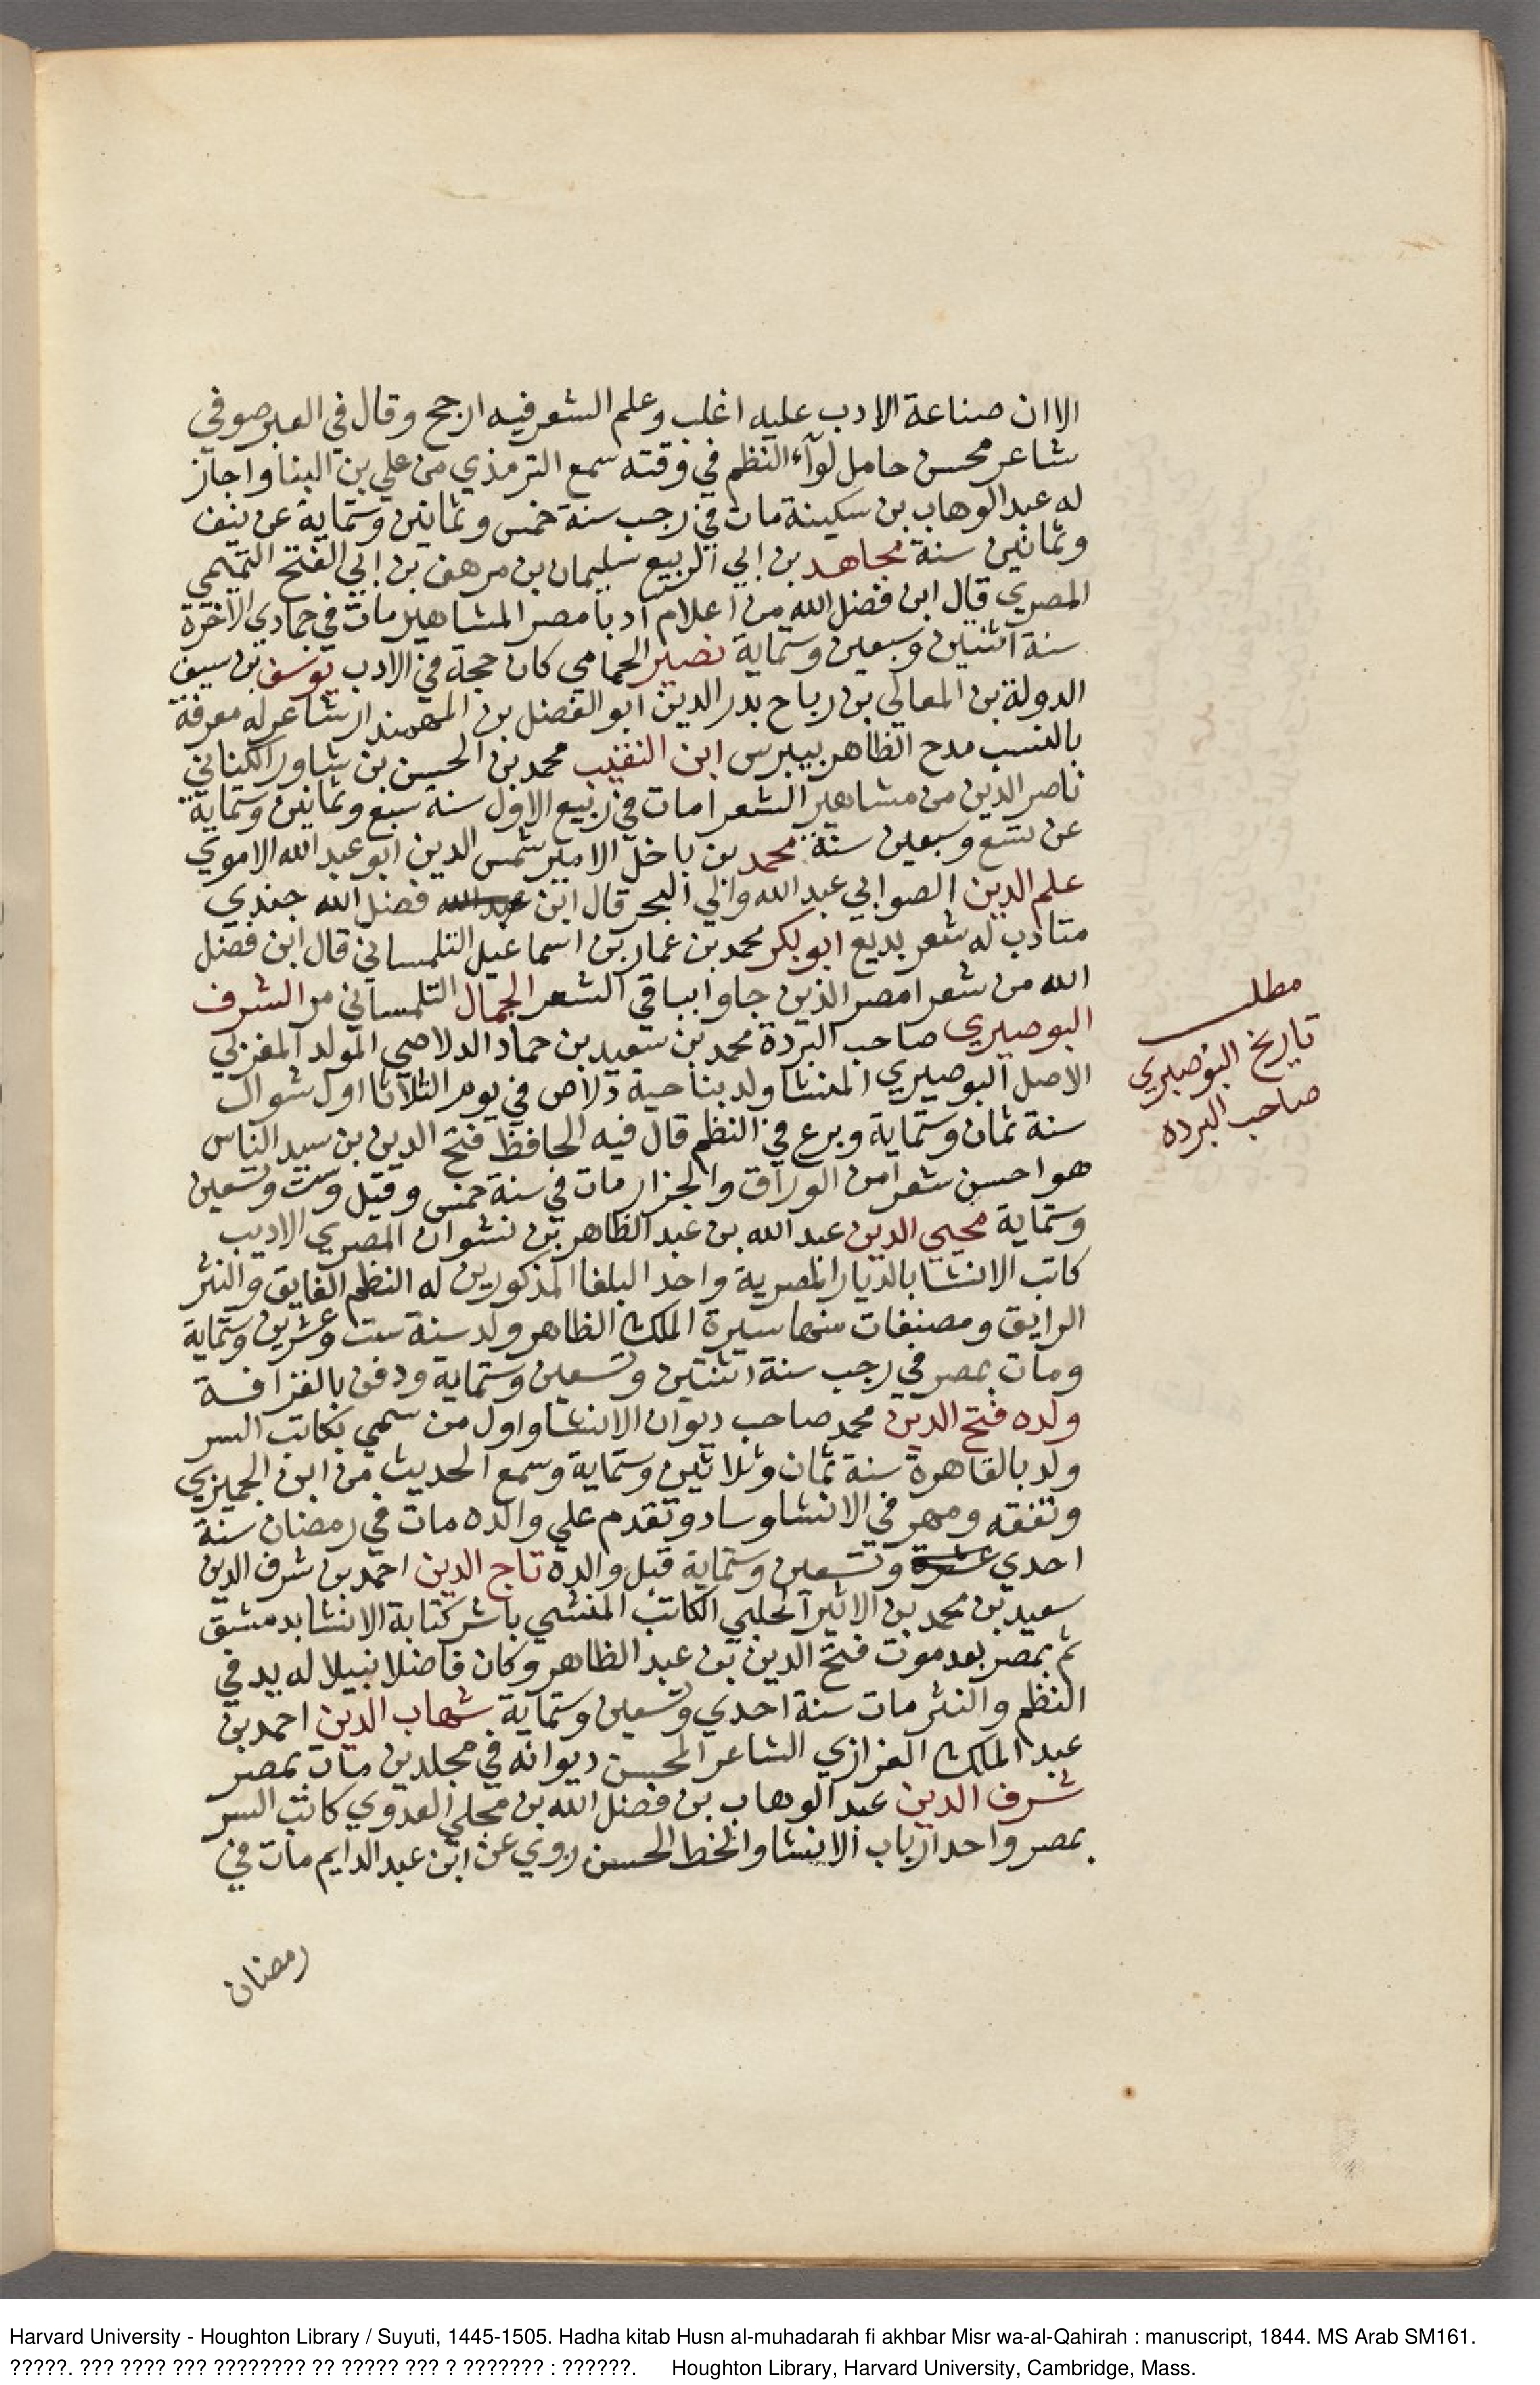 الا ان صناعة الادب عليه اغلب وعلم الشعر فيه ارجح وقال في العبر صوفي
شاعر محسن حامل لوآء النظم في وقته سمع الترمذي من علي بن البنا واجاز
له عبد الوهاب بن سكينة مات في رجب سنة خمس وثمانين وستماية عن نيف
وثمانين سنة مجاهد بن ابي الربيع سليمان بن مرهف بن ابي الفتح التميمي
المصري قال ابن فضل الله من اعلام ادبا مصر المشاهير مات في جمادي الاخرة
سنة اثنين وسبعين وستماية نصير الحمامي كان حجة في الادب يوسف بن سيف
الدولة بن المعالي بن رباح بدر الدين ابو الفضل بن المهمندار شاعر له معرفة
بالنسب مدح الظاهر بيبرس ابن النقيب محمد بن الحسين بن شاور الكناني
ناصر الدين من مشاهير الشعرا مات في ربيع الاول سنة سبع وثمانين وستماية
عن تسع وسبعين سنة محمد بن باخل الامير شمس الدين ابو عبد الله الاموي
علم الدين الصوابي عبد الله والي البحر قال ابن عبد الله فضل الله جندي
متادب له شعر بديع ابو بكر محمد بن عمار بن اسماعيل التلمساني قال ابن فضل
الله من شعرا مصر الذين جاوا بباقي الشعر الجمال التلمساني مر الشرف
البوصيري صاحب البردة محمد بن سعيد بن حماد الدلاصي المولد المغربي
الاصل البوصيري المنشا ولد بناحية دلاص في يوم الثلاثا اول شوال
سنة ثمان وستماية وبرع في النظم قال فيه الحافظ فتح الدين بن سيد الناس
هو احسن شعرا من الوراق والجزار مات في سنة خمس وقيل وست وتسعين
وستماية محيي الدين عبد الله بن عبد الظاهر بن نشوان المصري الاديب
كاتب الانشا بالديار المصرية واحد البلغا المذكورين له النظم الفايق والنثر
الرايق ومصنفات منها سيرة الملك الظاهر ولد سنة ست وعشرين وستماية
ومات بمصر في رجب سنة اثنتين وتسعين وستماية ودفن بالقرافة
ولده فتح الدين محمد صاحب ديوان الانشا واول من سمي بكاتب السر
ولد بالقاهرة سنة ثمان وثلاثين وستماية وسمع الحديث من ابن الجميزي
وتفقه ومهر في الانشا وساد وتقدم علي والده مات في رمضان سنة
احدي عشرة وتسعين وستماية قبل والده تاج الدين احمد بن شرف الدين
سعيد بن محمد بن الاثير الحلبي الكاتب المنشي باشر كتابة الانشا بدمشق
ثم بمصر بعد موت فتح الدين بن عبد الظاهر وكان فاضلا نبيلا له يد في
النظم والنثر مات سنة احدي وتسعين وستماية شهاب الدين احمد بن
عبد الملك العزازي الشاعر المحسن ديوانه في مجلدين مات بمصر
شرف الدين عبد الوهاب بن فضل الله بن مجلي العدوي كاتب السر
بمصر واحد ارباب الانشا والخط الحسن روي عن ابن عبد الدايم مات في
رمضان
مطلب
تاريخ البوصيري
صاحب البرده
Harvard University - Houghton Library / Suyuti, 1445-1505. Hadha kitab Husn al-muhadarah fi akhbar Misr wa-al-Qahirah : manuscript, 1844. MS Arab SM161.
?????. ??? ???? ??? ???????? ?? ????? ??? ? ??????? : ??????. Houghton Library, Harvard University, Cambridge, Mass.